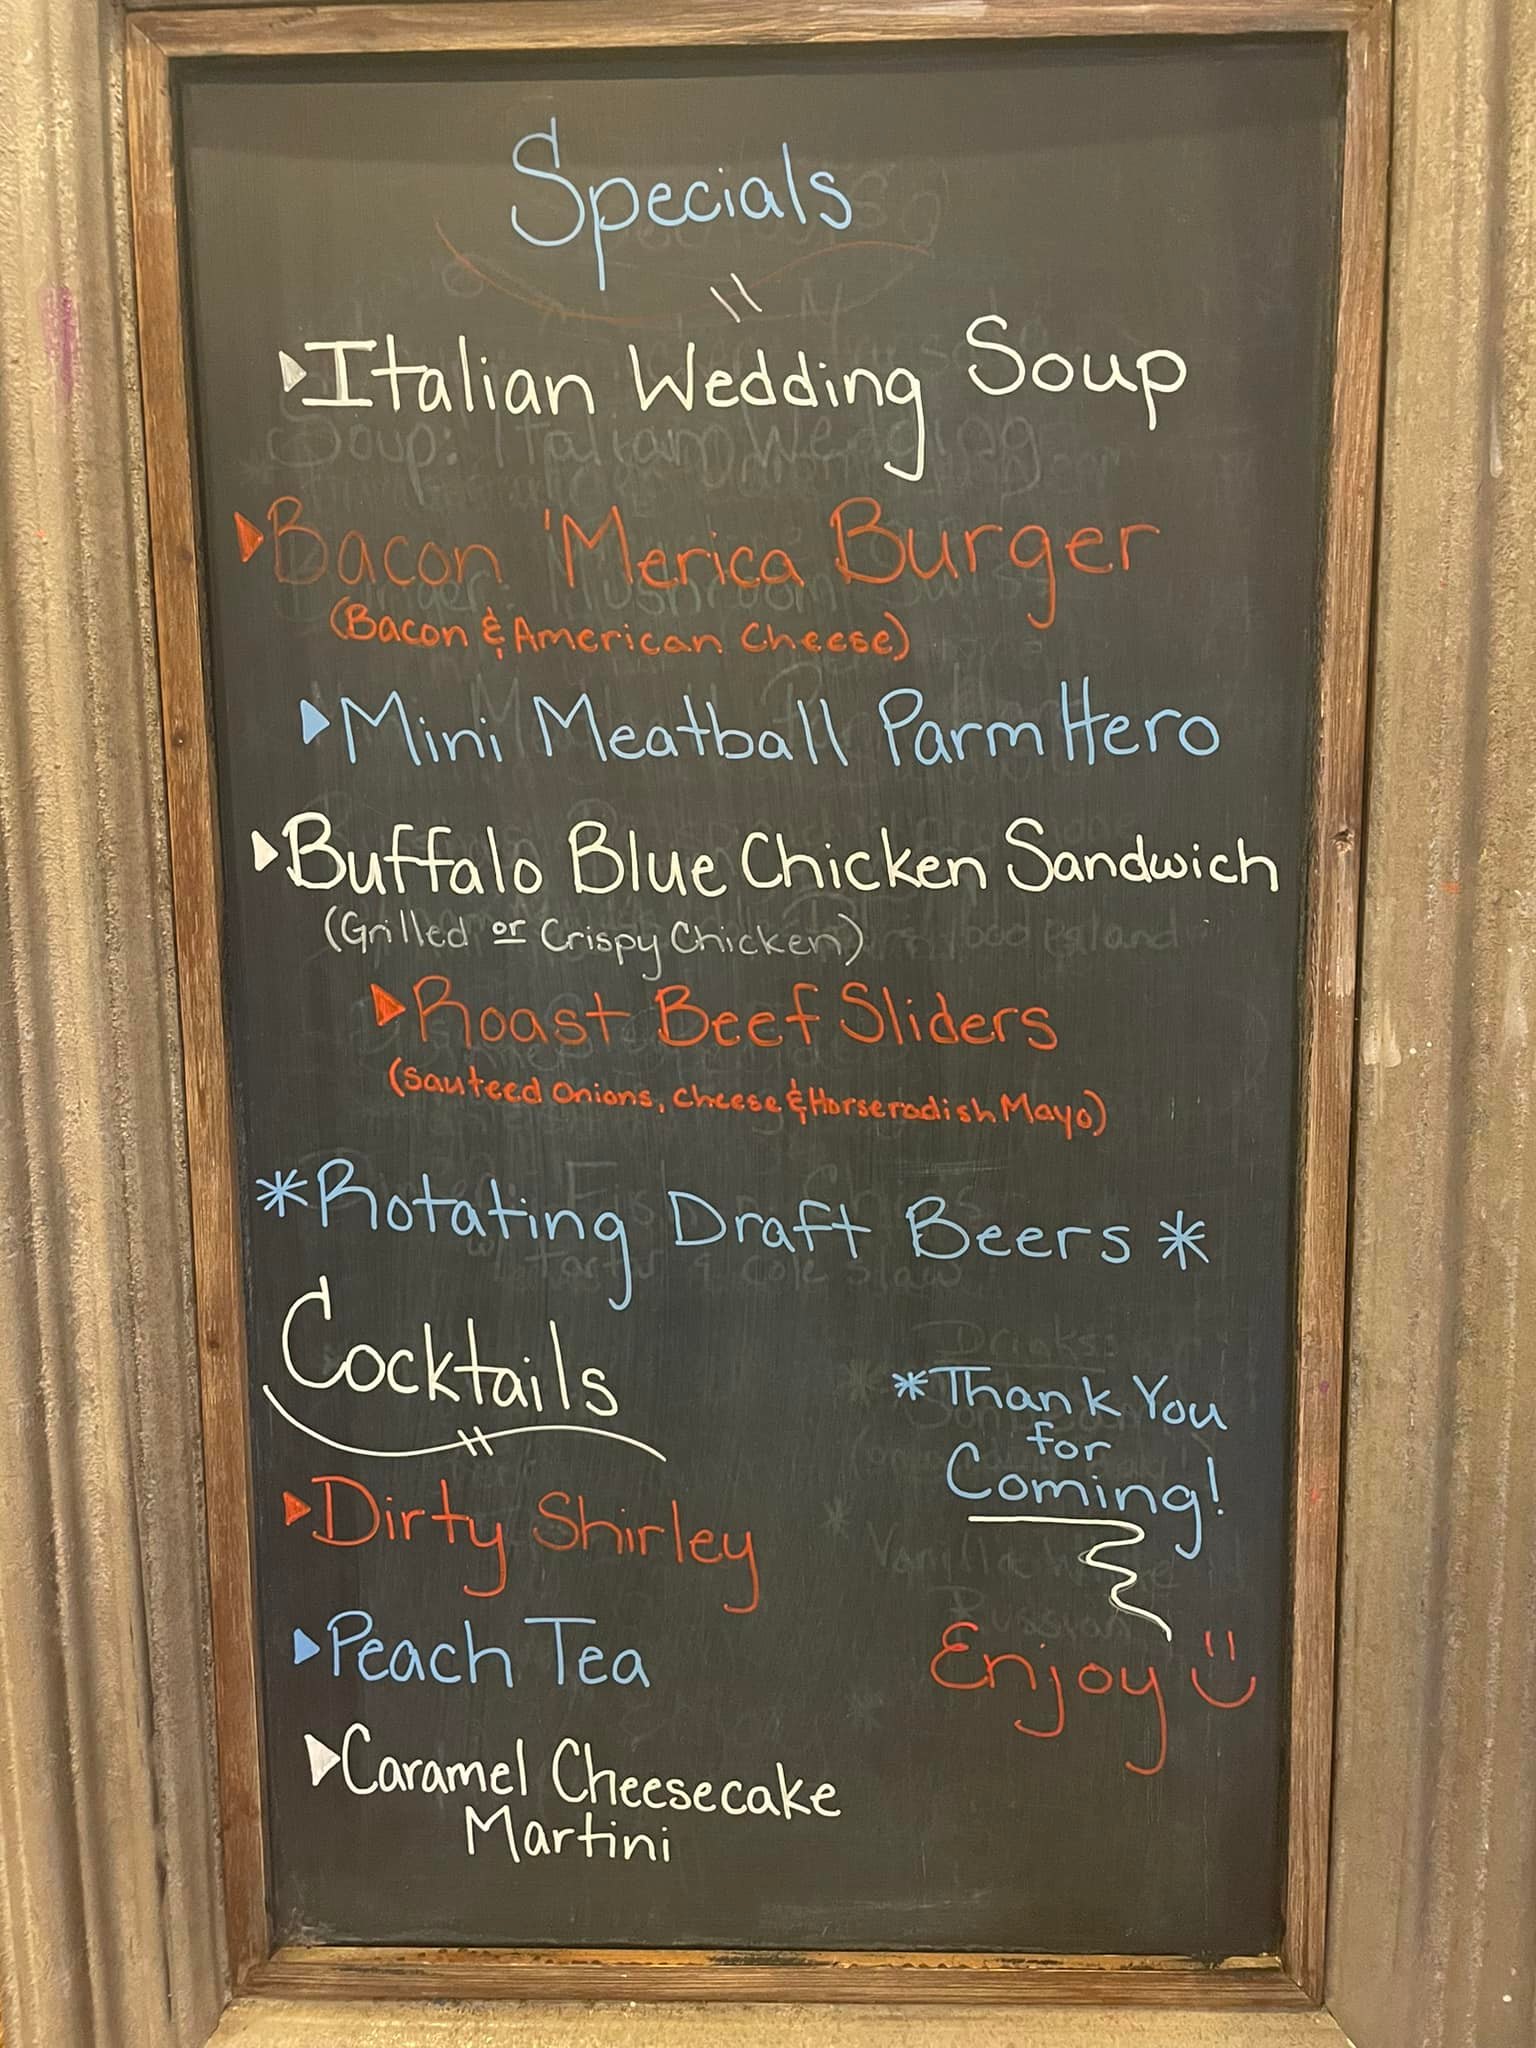 Specials
Italian Wedding Soup
Soup: Italian Wedding
Bacon 'Merica Burger
Burger: Mushroom Swiss
(Bacon & American Cheese)
Mini Meatball Parm Hero
Buffalo Blue Chicken Sandwich
(Grilled or Crispy Chicken)
Roast Beef Sliders
(Sauteed Onions, Cheese & Horseradish Mayo)
*Rotating Draft Beers*
w/ tartar & cole slaw
Cocktails
Drinks:
*Thank You
for
Coming!
Dirty Shirley
Peach Tea
Russian
Enjoy
Caramel Cheesecake
Martini